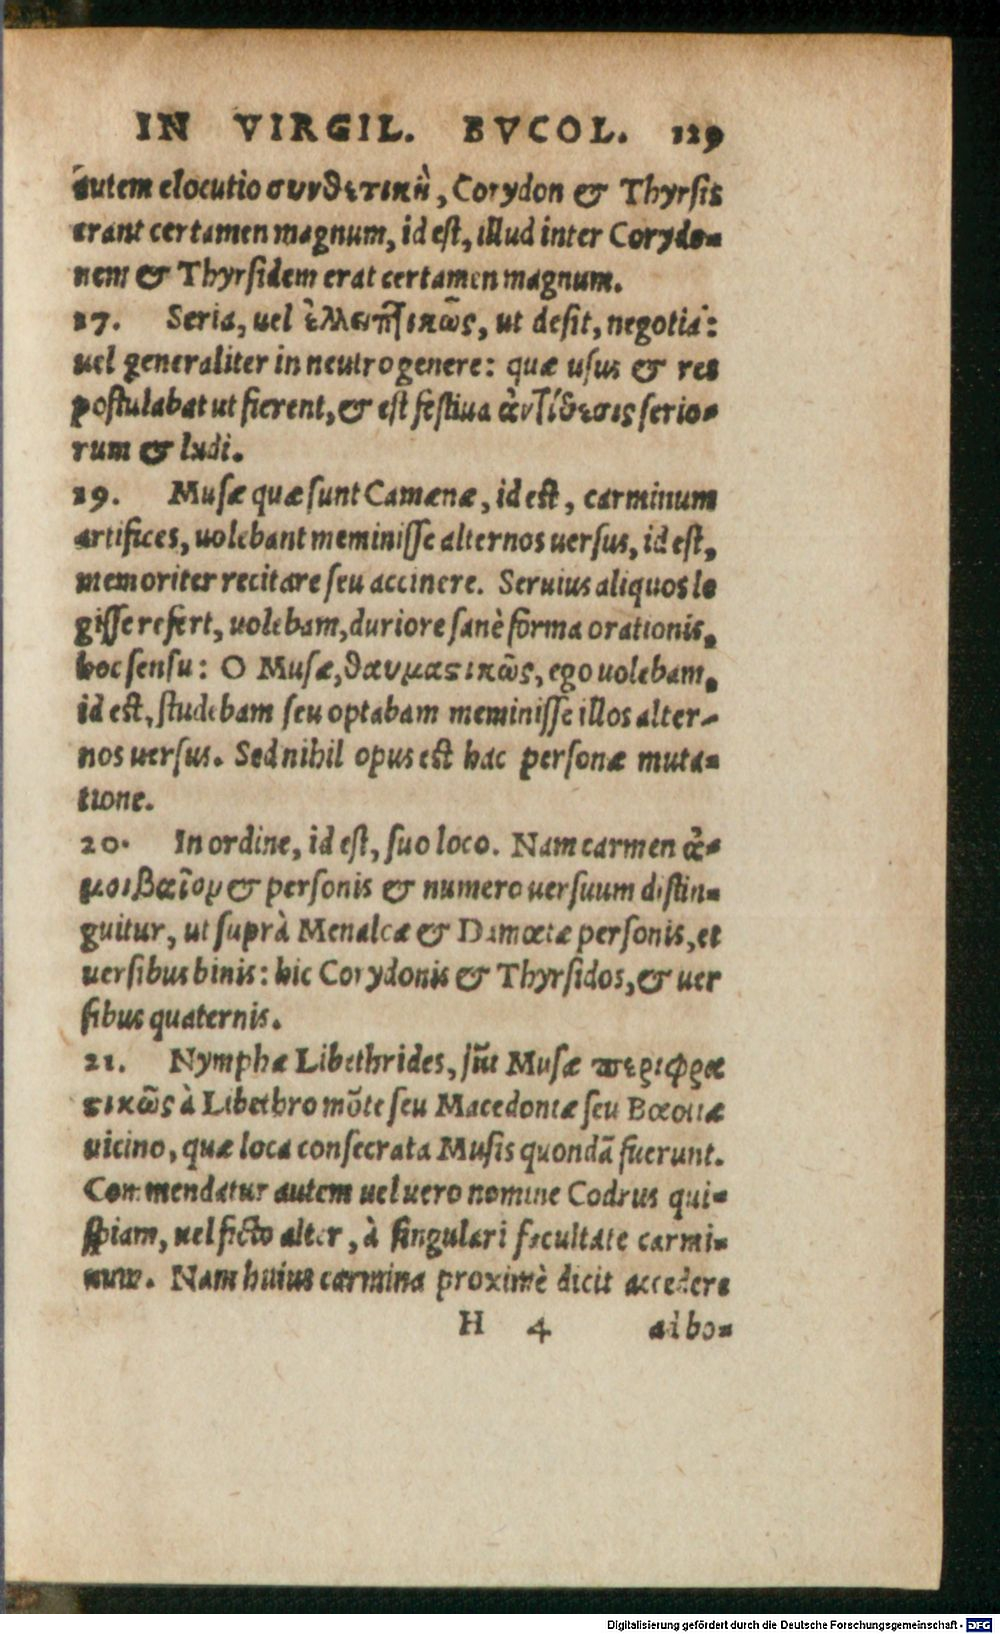 IN VIRGIL. BVCOL. 129
autem elocutio συνθετικὴ, Corydon & Thyrsis
erant certamen magnum, id est, illud inter Corydo-
nem & Thyrsidem erat certamen magnum.
17. Seria, uel ἐλλειπτικῶς, ut desit, negotia:
uel generaliter in neutro genere: quæ usus & res
postulabat ut fierent, & est festiua ἀντίθεσις serio-
rum & ludi.
19. Musæ quæ sunt Camœnæ, id est, carminum
artifices, uolebant meminisse alternos uersus, id est,
memoriter recitare seu accinere. Seruius aliquos le
gisse refert, uolebam, duriore sanè forma orationis,
hoc sensu: O Musæ, θαυμαστικῶς, ego uolebam,
id est, studebam seu optabam meminisse illos alter-
nos uersus. Sed nihil opus est hac personæ muta-
tione.
20. In ordine, id est, suo loco. Nam carmen ἀ-
μοιβαῖον & personis & numero uersuum distin-
guitur, ut suprà Menalcæ & Damœtæ personis, et
uersibus binis: hic Corydonis & Thyrsidos, & uer
sibus quaternis.
21. Nymphæ Libethrides, sūt Musæ περιφρα
στικῶς à Libethro mōte seu Macedoniæ seu Bœotiæ
uicino, quæ loca consecrata Musis quondā fuerunt.
Commendatur autem uel uero nomine Codrus qui-
spiam, uel ficto alter, à singulari facultate carmi-
num. Nam huius carmina proximè dicit accedere
H 4 ad bo-
Digitalisierung gefördert durch die Deutsche Forschungsgemeinschaft - DFG